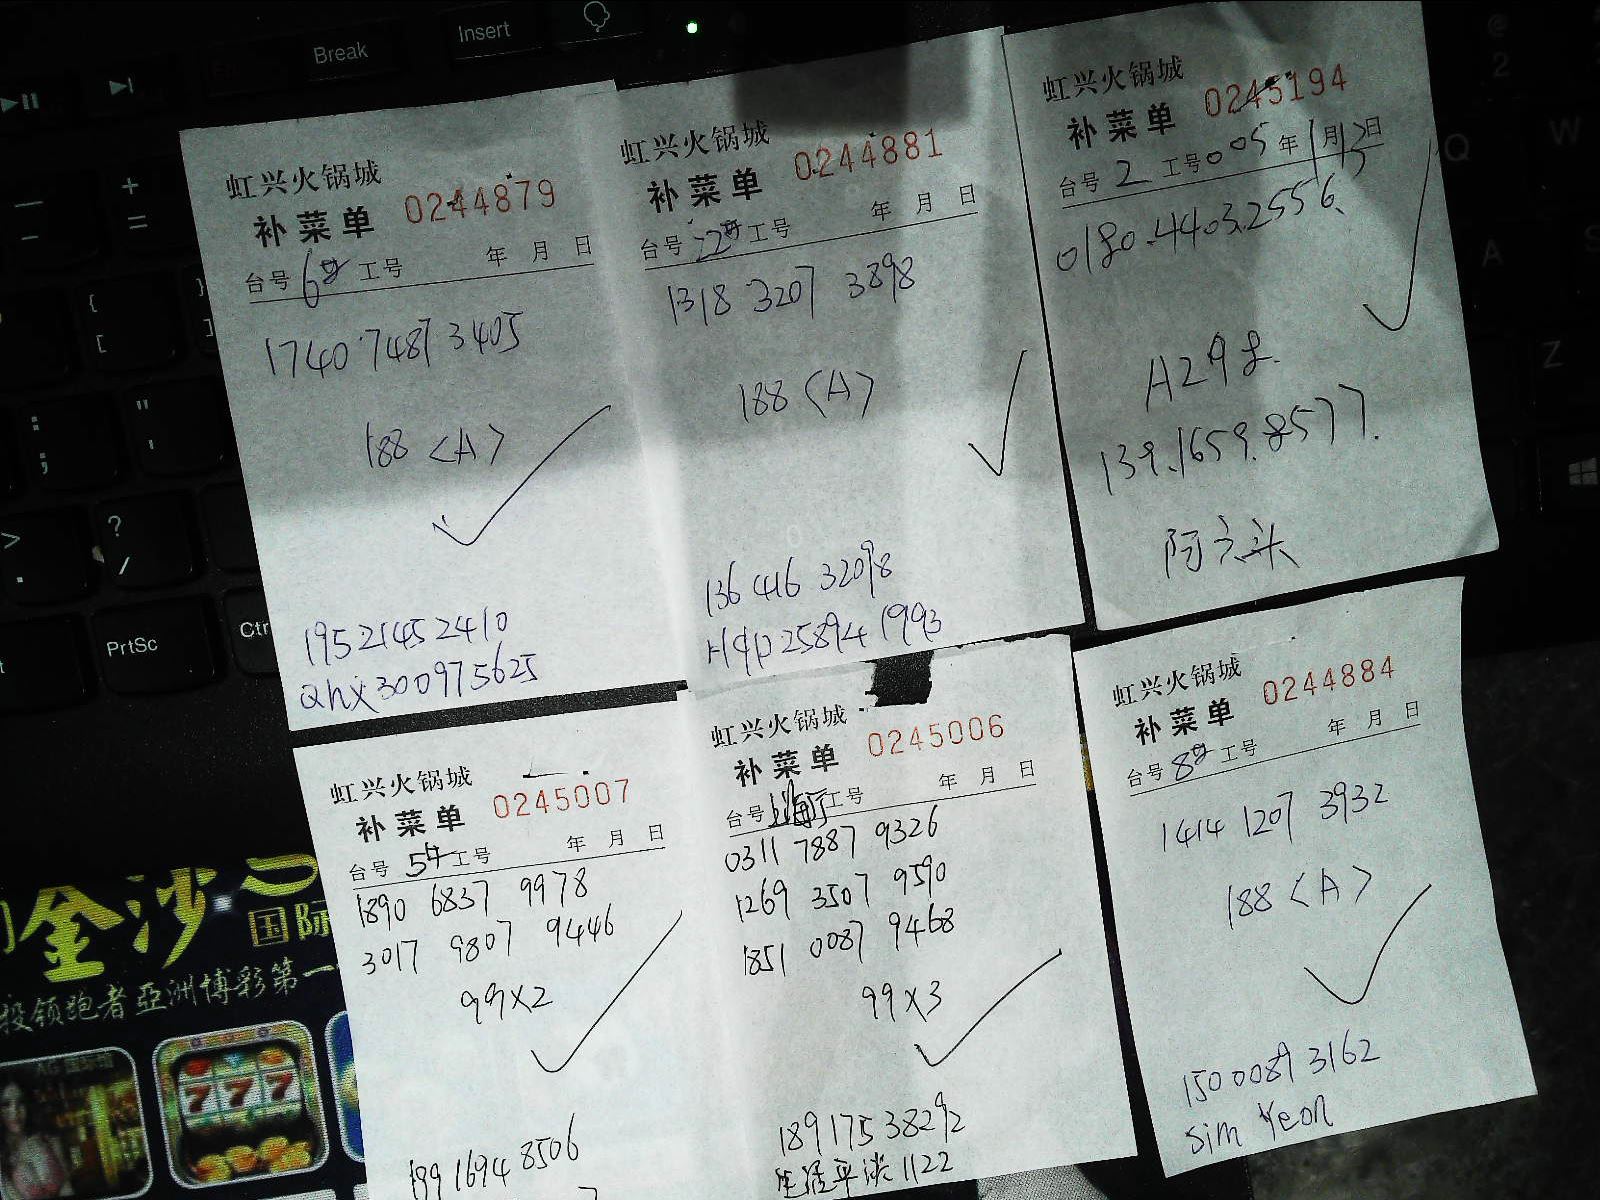 Break
Insert
PrtSc
虹兴火锅城
补菜单 0244879
台号 6 工号 年 月 日
1740 7487 3405
188 <A>
19521452410
Qhx300975625
虹兴火锅城
补菜单 0244881
台号 工号 年 月 日
1318 3207 3898
188 <A>
136 416 32098
25894 1993
虹兴火锅城
补菜单 0245194
台号 2 工号 005 年 1 月 13 日
0180.4403.2556.
A298.
139.1659.8577.
阿六头
虹兴火锅城
补菜单 0245007
台号 5 工号 年 月 日
1890 6837 9978
3017 9807 9446
99×2
199 1694 8506
虹兴火锅城
补菜单 0245006
台号 工号 年 月 日
0311 7887 9326
1269 3507 9590
1851 0087 9468
99×3
189 175 38292
生活平淡1122
虹兴火锅城
补菜单 0244884
台号 8 工号 年 月 日
1414 1207 3932
188 <A>
150 0089 3162
Sim Yeon
金沙
国际
投领跑者亞洲博彩第一
777